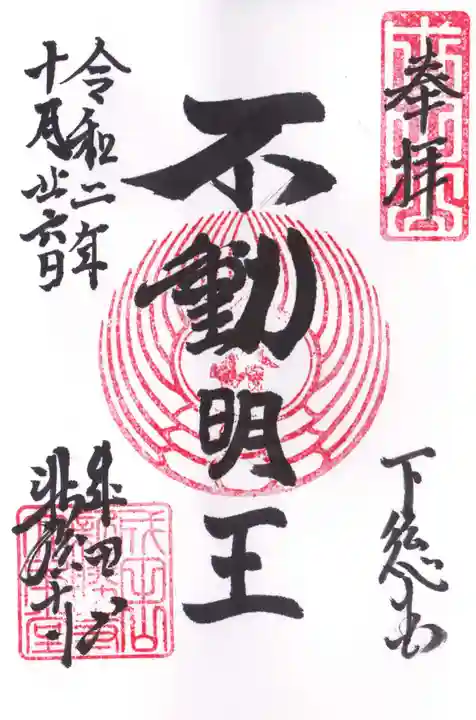 奉拝
下総国
不動明王
令和二年
十月廿六日
成田山
新勝寺